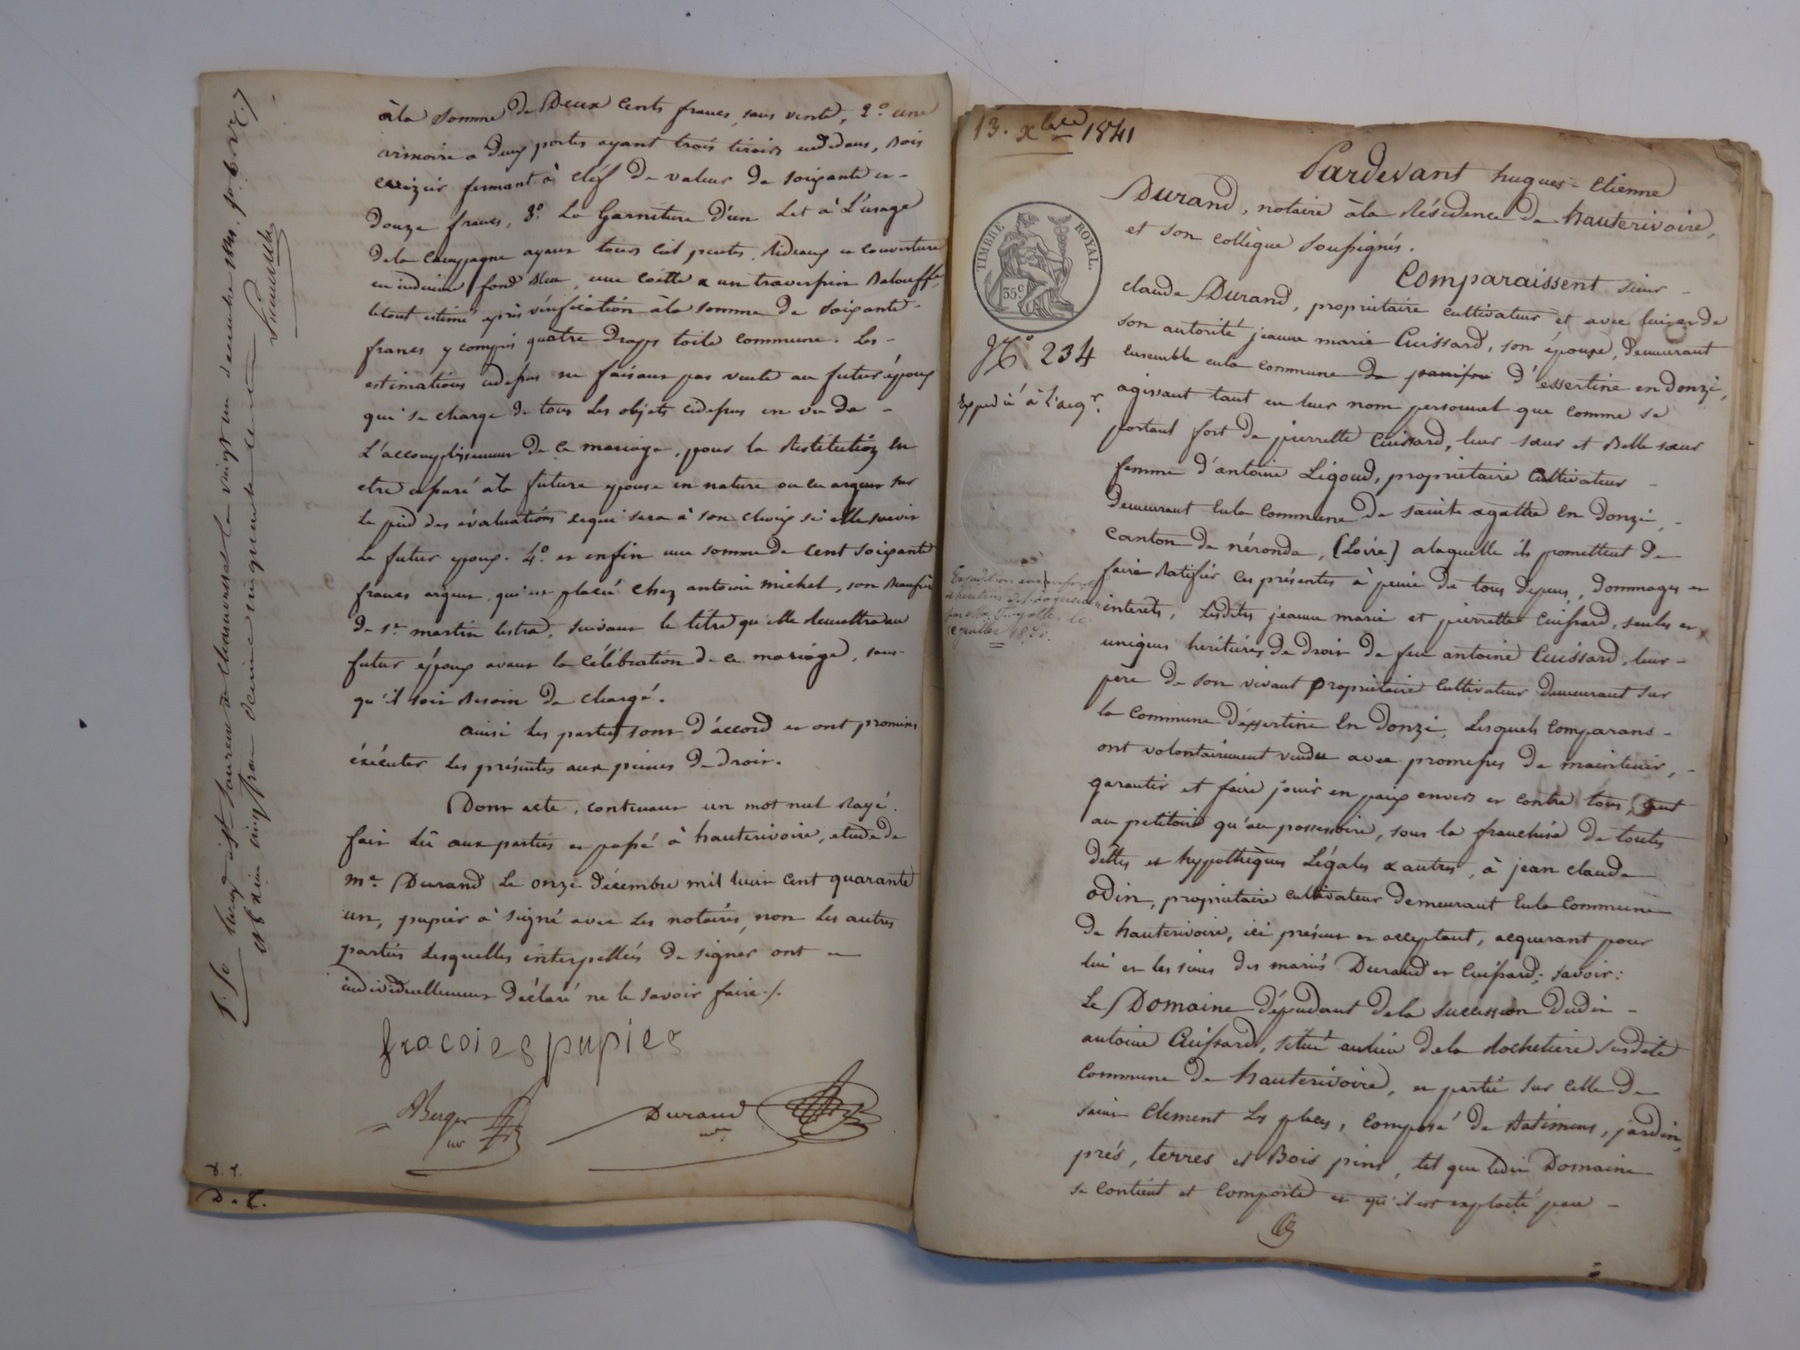 à la somme de Deux cents francs, sans vente, 2.o une
armoire a deux portes ayant trois tiroirs endedans, Bois
cerizier fermant à clef de valeur de soixante et
douze francs, 3.o La Garniture d'un Lit à L'usage
de la campagne ayant tours ciel pentes, Rideaux et couverture
en indienne fond bleu, une coette & un traverspin Balouffe,
letout estimé après vérification àla somme de soixante
francs y compris quatre Drapps toile commune. Les
estimations cidessus ne faisant pas vente au futur époux
qui se charge de tous Les objets cidessus en vu de
L'accomplissement de ce mariage, pour la Restitution en
etre a faré àla future epouse en nature ou en argent sur
le pied des évaluations cequi sera à son choix si elle survit
Le futur epoux. 4.o et enfin une somme de cent soixante
francs argent, qui est placée chez antoine michel, son Beaufrère
de st martin lestra, suivant le titre qu'elle Remettra au
futur époux avant la célébration de ce mariage, sans
qu'il soit Besoin de charge.
ainsi Les parties sont d'accord et ont promis
éxécuter les présentes aux peines de droit.
Dont acte, contenant un mot nul Rayé.
fait Lû aux parties et passé à hauterivoire, etude de
me Durand Le onze décembre mil huit cent quarante
un, pupier à signé avec les notaires, non les autres
parties lesquelles interpellées de signer ont
individuellement déclaré ne le savoir faire ./.
fracoies pupier
ABerger nre
Durand nre
D. E.
13. Xbre 1841
TIMBRE ROYAL.
35c
No 234
Expédié à l'acqr.
Pardevant hugues-Etienne
Durand, notaire àla Résidence de hauterivoire,
et son collègue soussignés.
Comparaissent sieur
claude Durand, propriétaire cultivateur et avec lui et de
son autorité jeanne marie Cuissard, son épouse, demeurant
ensemble enla commune d'essertine en donzi,
agissant tant en leur nom personnel que comme se
portant fort de pierrette Cuissard, leur sœur et Belle sœur
femme d'antoine Ligoud, propriétaire Cultivateur
demeurant Enla Commune de sainte agathe En donzi,
Canton de néronde, (Loire) alaquelle ils promettent de
faire Ratifier ces présentes à peine de tous depens, dommages et
interets, Lesdites jeanne marie et pierrette Cuissard, seules et
uniques heritières de droit de feu antoine Cuissard, leur
pere de son vivant propriétaire Cultivateur demeurant sur
la Commune d'essertine En donzi, Lesquels Comparans
ont volontairement vendu avec promesses de maintenir,
garantir et faire jouir en paix envers et contre tous tant
au petitoire qu'au possessoire, sous la franchise de toutes
dettes et hypothèques Légales & autres, à jean claude
odin, propriétaire cultivateur demeurant Enla Commune
de hauterivoire, ici présent et acceptant, acquerant pour
lui et les siens des mariés Durand et Cuissard, savoir :
Le Domaine dépendant dela succession dudit
antoine Cuissard, situé aulieu dela Rochetiere susdite
Commune de hauterivoire, et partie sur celle de
saint Clement Les places, Composé de Batimens, jardin,
prés, terres et Bois pins, tel que ledit Domaine
se contient et comporte et qu'il est exploité par